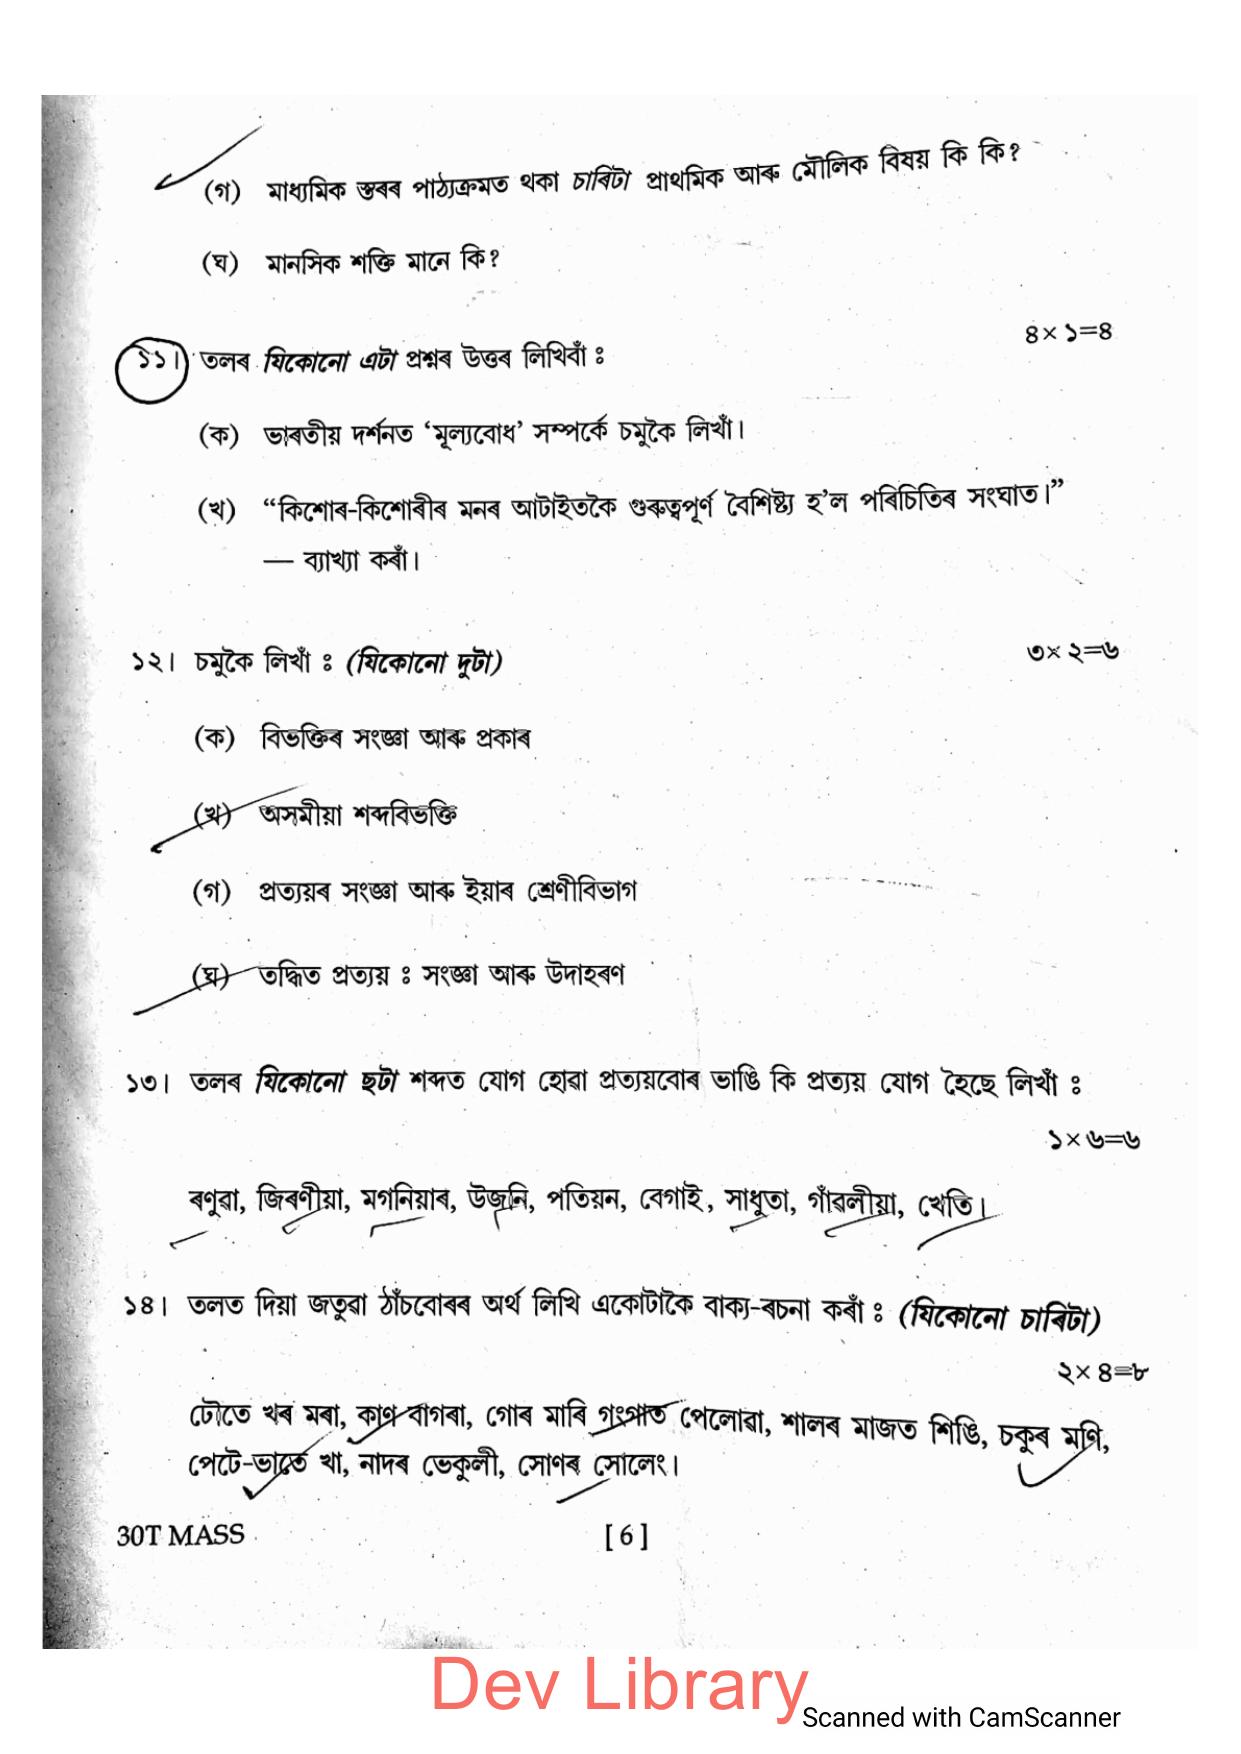 (গ) মাধ্যমিক স্তৰৰ পাঠ্যক্রমত থকা চাৰিটা প্রাথমিক আৰু মৌলিক বিষয় কি কি?
(ঘ) মানসিক শক্তি মানে কি?
৪× ১=৪
১১। তলৰ যিকোনো এটা প্রশ্নৰ উত্তৰ লিখিবাঁ ঃ
(ক) ভাৰতীয় দর্শনত ‘মূল্যবোধ’ সম্পর্কে চমুকৈ লিখাঁ।
(খ) “কিশোৰ-কিশোৰীৰ মনৰ আটাইতকৈ গুৰুত্বপূর্ণ বৈশিষ্ট্য হ’ল পৰিচিতিৰ সংঘাত।”
— ব্যাখ্যা কৰাঁ।
১২। চমুকৈ লিখাঁ ঃ (যিকোনো দুটা) ৩× ২=৬
(ক) বিভক্তিৰ সংজ্ঞা আৰু প্রকাৰ
(খ) অসমীয়া শব্দবিভক্তি
(গ) প্রত্যয়ৰ সংজ্ঞা আৰু ইয়াৰ শ্রেণীবিভাগ
(ঘ) তদ্ধিত প্রত্যয় ঃ সংজ্ঞা আৰু উদাহৰণ
১৩। তলৰ যিকোনো ছটা শব্দত যোগ হোৱা প্রত্যয়বোৰ ভাঙি কি প্রত্যয় যোগ হৈছে লিখাঁ ঃ
১× ৬=৬
ৰণুৱা, জিৰণীয়া, মগনিয়াৰ, উজনি, পতিয়ন, বেগাই, সাধুতা, গাঁৱলীয়া, খেতি।
১৪। তলত দিয়া জতুৱা ঠাঁচবোৰৰ অর্থ লিখি একোটাকৈ বাক্য-ৰচনা কৰাঁ ঃ (যিকোনো চাৰিটা)
২× ৪=৮
ঢৌতে খৰ মৰা, কাণ বাগৰা, গোৰ মাৰি গংগাত পেলোৱা, শালৰ মাজত শিঙি, চকুৰ মণি,
পেটে-ভাতে খা, নাদৰ ভেকুলী, সোণৰ সোলেং।
30T MASS [ 6 ]
Dev Library
Scanned with CamScanner